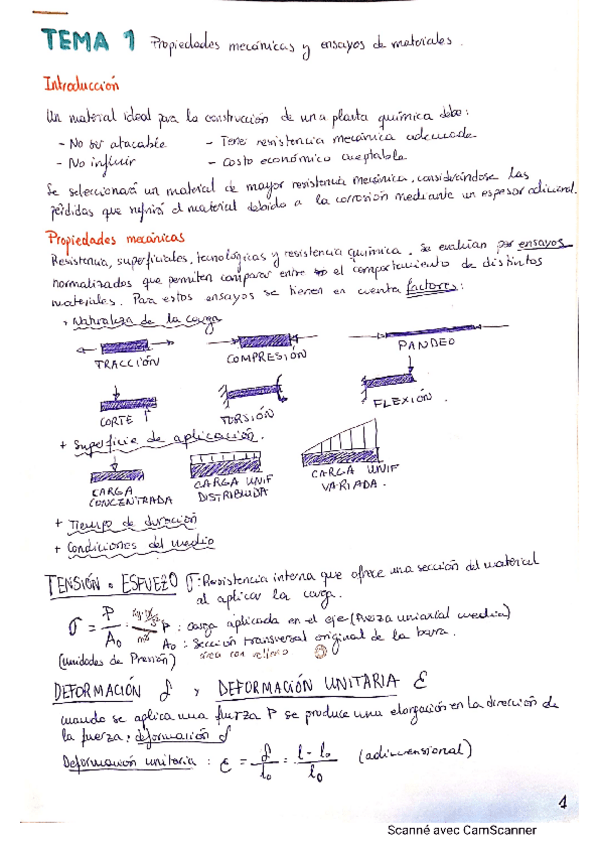 TEMA 1 Propiedades mecánicas y ensayos de materiales.
Introducción
Un material ideal para la construcción de una planta química debe:
- No ser atacable - Tener resistencia mecánica adecuada
- No influir - Costo económico aceptable
Se seleccionará un material de mayor resistencia mecánica, considerándose las
pérdidas que sufrirá el material debido a la corrosión mediante un espesor adicional.
Propiedades mecánicas
Resistencia, superficiales, tecnológicas y resistencia química. Se evalúan por ensayos
normalizados que permiten comparar entre el comportamiento de distintos
materiales. Para estos ensayos se tienen en cuenta factores:
Naturaleza de la carga
TRACCIÓN COMPRESIÓN PANDEO
CORTE TORSIÓN FLEXIÓN.
+ Superficie de aplicación.
CARGA CONCENTRADA
CARGA UNIF DISTRIBUIDA
CARGA UNIF VARIADA.
+ Tiempo de duración
+ Condiciones del medio
TENSIÓN o ESFUEZO σ: Resistencia interna que ofrece una sección del material
al aplicar la carga.
σ = P / A₀
P: carga aplicada en el eje (fuerza uniaxial media)
A₀: Sección transversal original de la barra.
(unidades de Presión)
DEFORMACIÓN δ, DEFORMACIÓN UNITARIA ε
cuando se aplica una fuerza P se produce una elongación en la dirección de
la fuerza: deformación δ
Deformación unitaria: ε = δ / l₀ = l - l₀ / l₀ (adimensional)
1
Scanné avec CamScanner